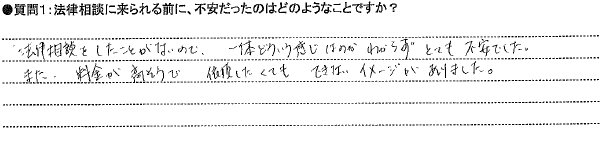 ●質問1:法律相談に来られる前に、不安だったのはどのようなことですか?
法律相談をしたことがないので、一体どういう感じなのか わからず とても 不安でした。
また、料金が高そうで 依頼したくても できない イメージが ありました。